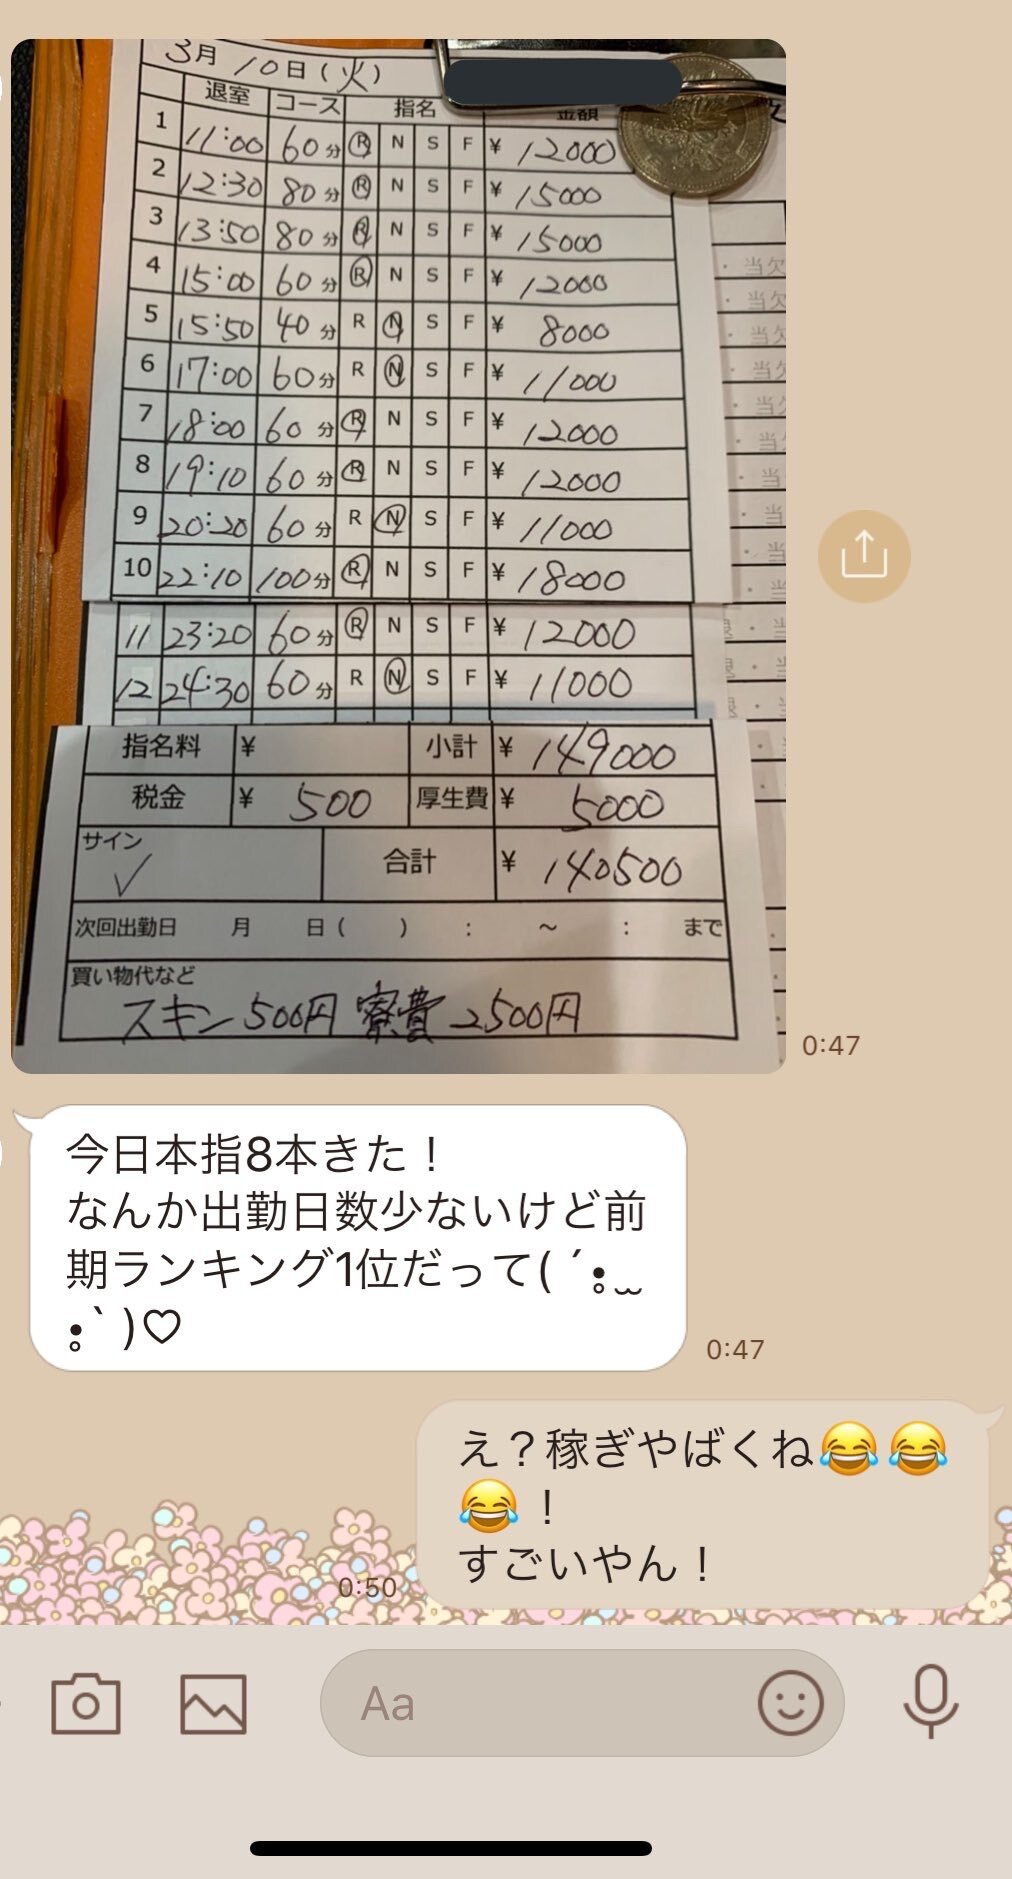 3月 10日(火)
退室 コース 指名 金額
1 11:00 60分 R N S F ¥ 12000
2 12:30 80分 R N S F ¥ 15000
3 13:50 80分 R N S F ¥ 15000
4 15:00 60分 R N S F ¥ 12000
5 15:50 40分 R N S F ¥ 8000
6 17:00 60分 R N S F ¥ 11000
7 18:00 60分 R N S F ¥ 12000
8 19:10 60分 R N S F ¥ 12000
9 20:20 60分 R N S F ¥ 11000
10 22:10 100分 R N S F ¥ 18000
11 23:20 60分 R N S F ¥ 12000
12 24:30 60分 R N S F ¥ 11000
指名料 ¥ 小計 ¥ 149000
税金 ¥ 500 厚生費 ¥ 5000
サイン
✓ 合計 ¥ 140500
次回出勤日 月 日( ) : ~ : まで
買い物代など
スキン500円 寮費2500円
・当欠
・当欠
・当
・当
・当
・当
・当
・当
・当
0:47
今日本指8本きた!
なんか出勤日数少ないけど前
期ランキング1位だって( ´•̥ ̫
•̥` )♡
0:47
え?稼ぎやばくね😂😂
😂!
すごいやん!
0:50
Aa